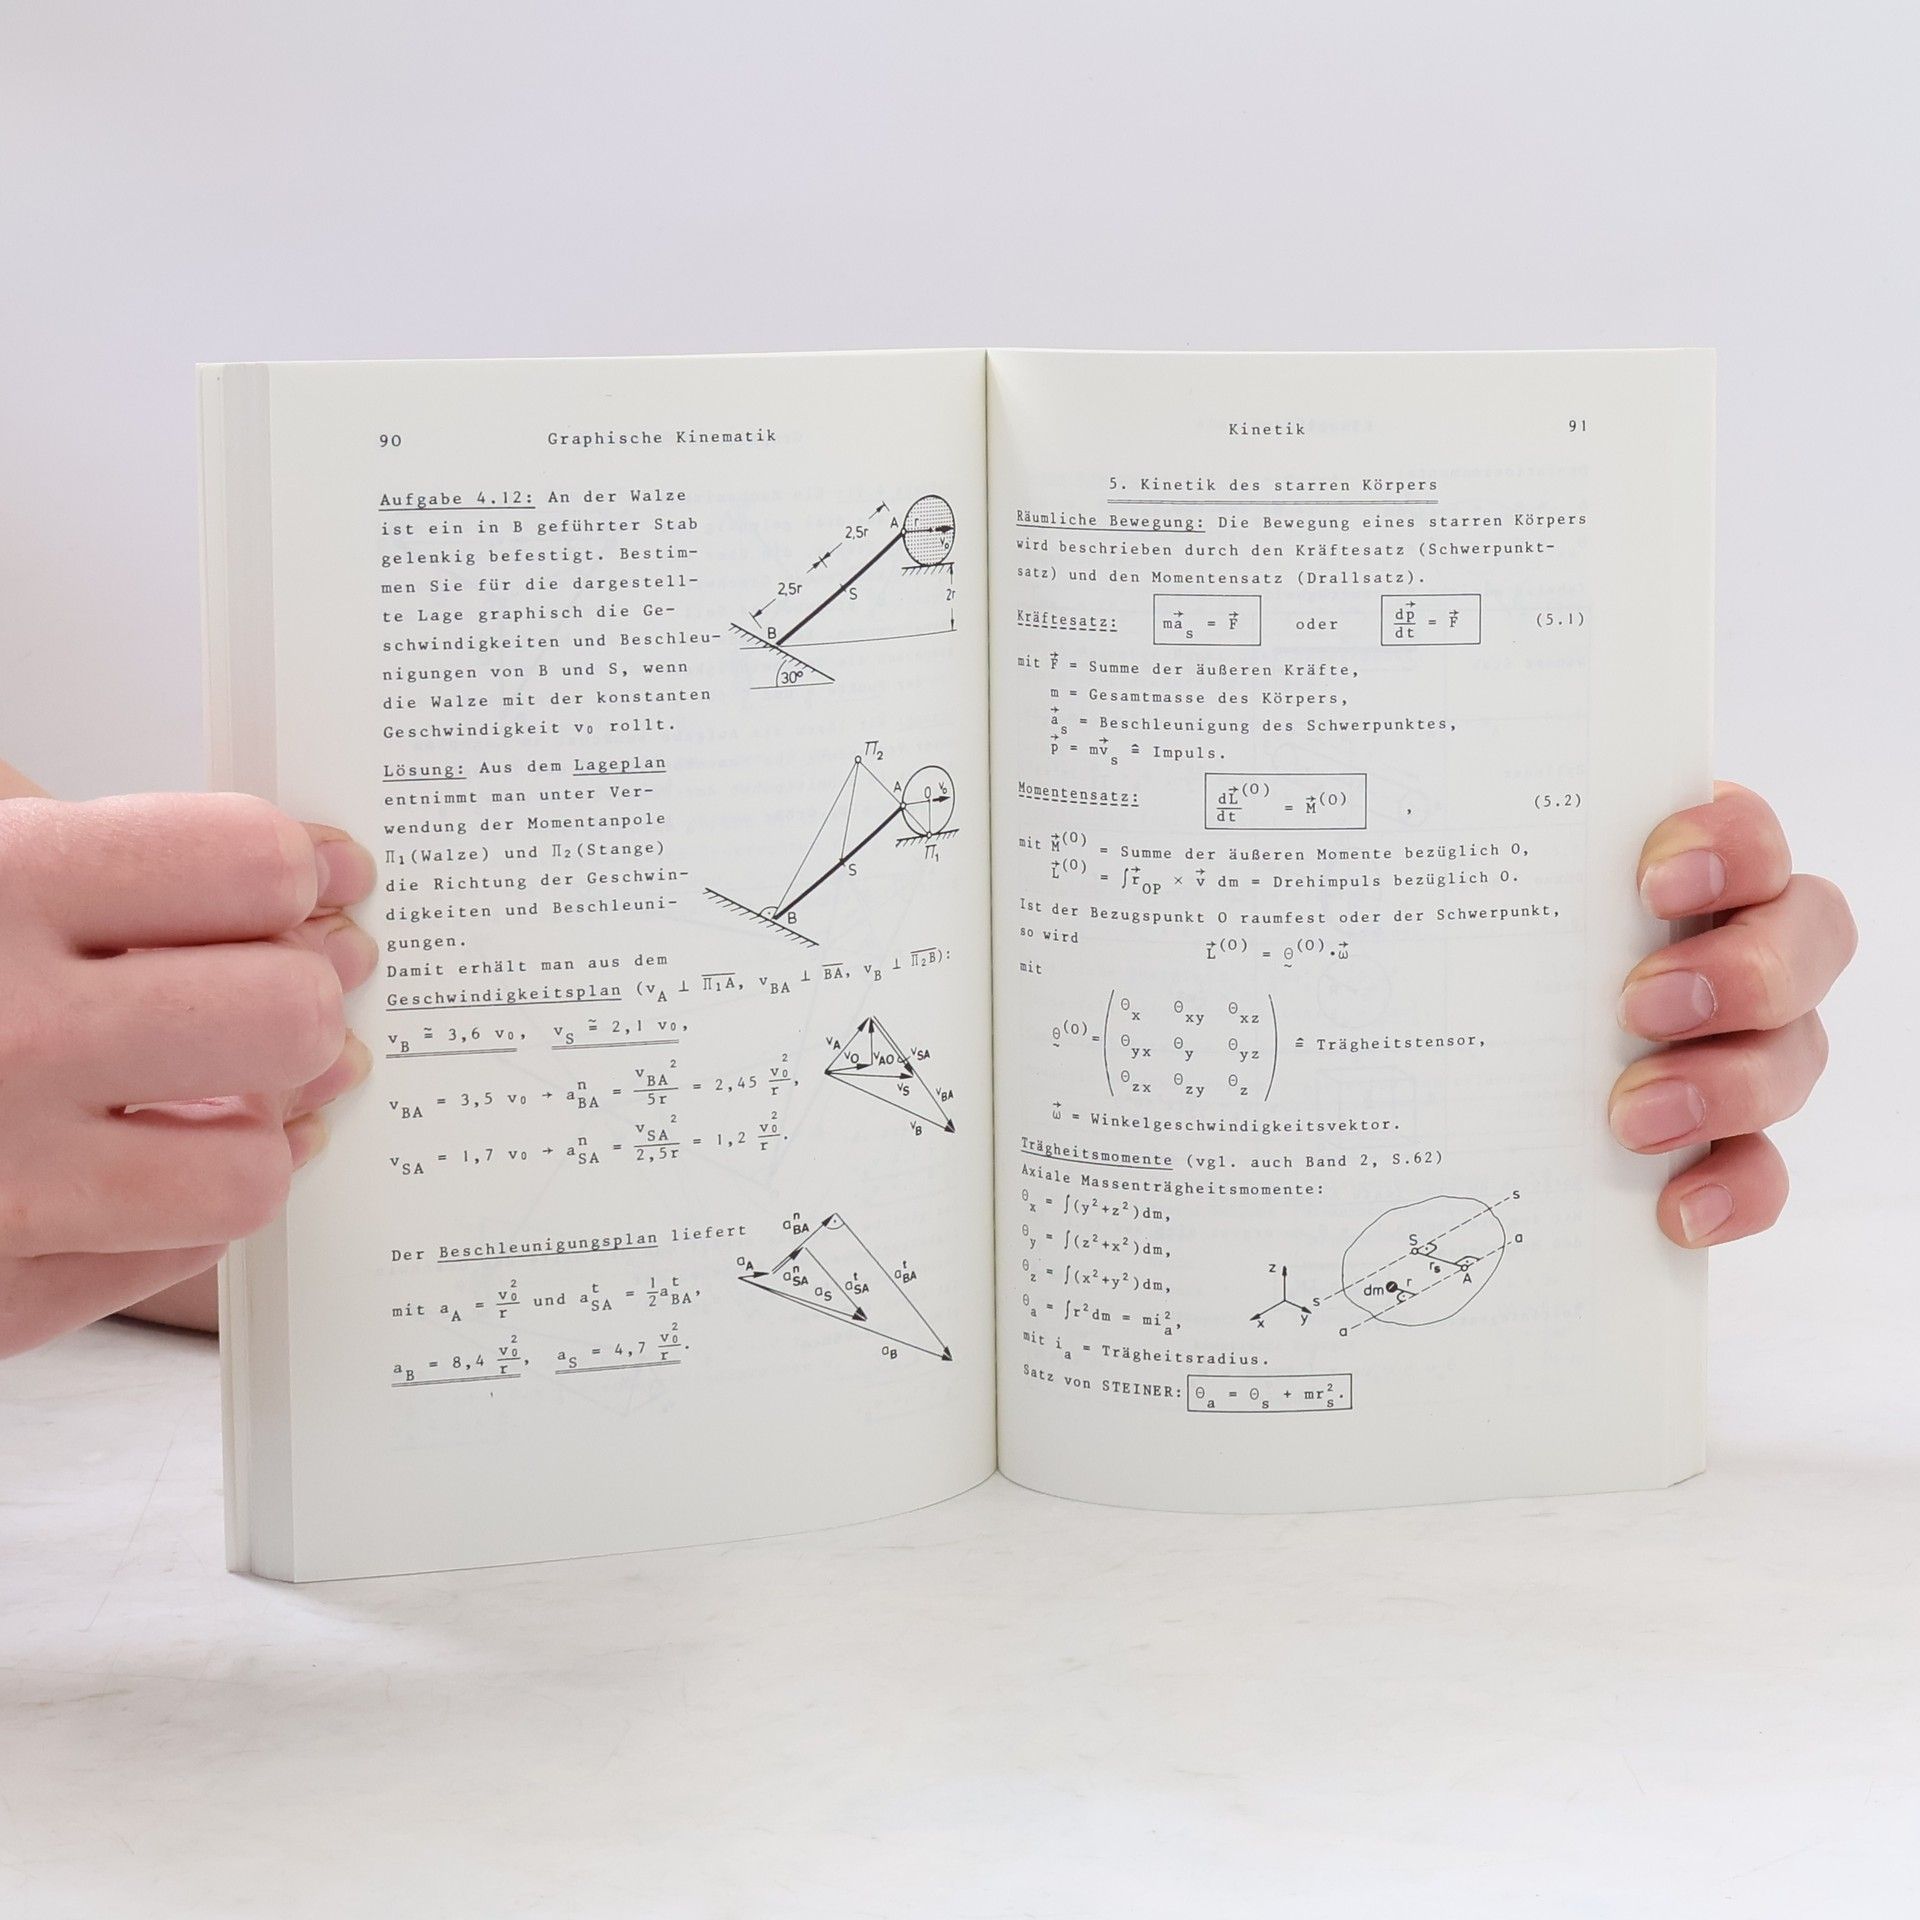 90 Graphische Kinematik
Aufgabe 4.12: An der Walze
ist ein in B geführter Stab
gelenkig befestigt. Bestim-
men Sie für die dargestell-
te Lage graphisch die Ge-
schwindigkeiten und Beschleu-
nigungen von B und S, wenn
die Walze mit der konstanten
Geschwindigkeit v₀ rollt.
2,5r
2,5r
A
r
v₀
S
B
2r
30°
Lösung: Aus dem Lageplan
entnimmt man unter Ver-
wendung der Momentanpole
Π₁(Walze) und Π₂(Stange)
die Richtung der Geschwin-
digkeiten und Beschleuni-
gungen.
Π₂
A
O
v₀
S
Π₁
B
Damit erhält man aus dem
Geschwindigkeitsplan (v_A ⊥ \overline{Π₁A}, v_BA ⊥ \overline{BA}, v_B ⊥ \overline{Π₂B}):
v_B ≅ 3,6 v₀, v_S ≅ 2,1 v₀,
v_BA = 3,5 v₀ → a_BA^n = v_BA²/5r = 2,45 v₀²/r,
v_SA = 1,7 v₀ → a_SA^n = v_SA²/2,5r = 1,2 v₀²/r.
v_A
v_O
v_AO
v_SA
v_S
v_BA
v_B
Der Beschleunigungsplan liefert
mit a_A = v₀²/r und a_SA^t = ½a_BA^t,
a_B = 8,4 v₀²/r, a_S = 4,7 v₀²/r.
a_BA^n
a_A
a_SA^n
a_S
a_SA^t
a_BA^t
a_B
Kinetik 91
5. Kinetik des starren Körpers
Räumliche Bewegung: Die Bewegung eines starren Körpers
wird beschrieben durch den Kräftesatz (Schwerpunkt-
satz) und den Momentensatz (Drallsatz).
Kräftesatz: m\vec{a}_s = \vec{F} oder d\vec{p}/dt = \vec{F} (5.1)
mit \vec{F} = Summe der äußeren Kräfte,
m = Gesamtmasse des Körpers,
\vec{a}_s = Beschleunigung des Schwerpunktes,
\vec{p} = m\vec{v}_s ≙ Impuls.
Momentensatz: d\vec{L}^(O)/dt = \vec{M}^(O) , (5.2)
mit \vec{M}^(O) = Summe der äußeren Momente bezüglich O,
\vec{L}^(O) = ∫\vec{r}_OP × \vec{v} dm = Drehimpuls bezüglich O.
Ist der Bezugspunkt O raumfest oder der Schwerpunkt,
so wird
\vec{L}^(O) = Θ^(O)·\vec{ω}
mit
Θ_x Θ_xy Θ_xz
Θ^(O) = Θ_yx Θ_y Θ_yz ≙ Trägheitstensor,
Θ_zx Θ_zy Θ_z
\vec{ω} = Winkelgeschwindigkeitsvektor.
Trägheitsmomente (vgl. auch Band 2, S.62)
Axiale Massenträgheitsmomente:
Θ_x = ∫(y²+z²)dm,
Θ_y = ∫(z²+x²)dm,
Θ_z = ∫(x²+y²)dm,
Θ_a = ∫r²dm = mi_a²,
mit i_a = Trägheitsradius.
Satz von STEINER: Θ_a = Θ_s + mr_s².
z
x
y
s
S
a
r_s
A
dm
r
s
a